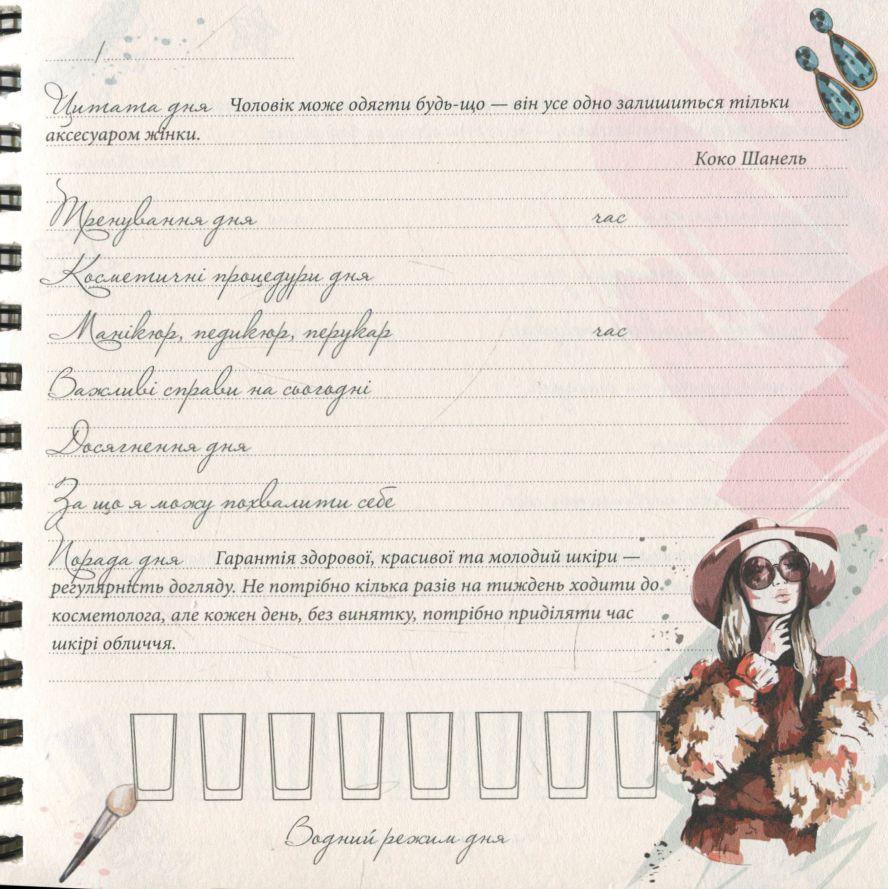 /
Цитата дня Чоловік може одягти будь-що — він усе одно залишиться тільки
аксесуаром жінки.
Коко Шанель
Тренування дня час
Косметичні процедури дня
Манікюр, педикюр, перукар час
Важливі справи на сьогодні
Досягнення дня
За що я можу похвалити себе
Порада дня Гарантія здорової, красивої та молодий шкіри —
регулярність догляду. Не потрібно кілька разів на тиждень ходити до
косметолога, але кожен день, без винятку, потрібно приділяти час
шкірі обличчя.
Водний режим дня